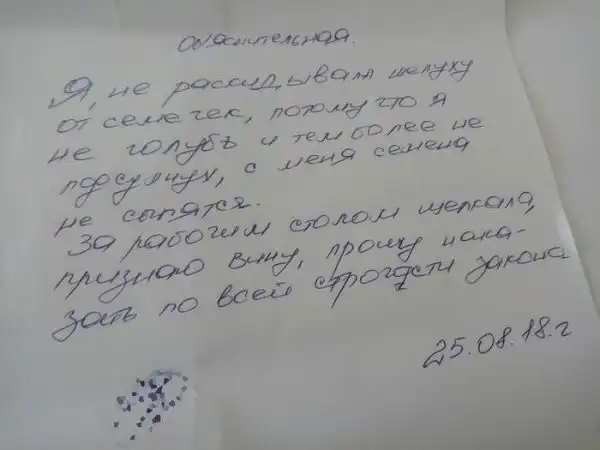 Объяснительная.
Я, не расскидывала шелуху
от семечек, потому что я
не голубь и тем более не
подсулнух, с меня семена
не сыпятся.
За рабочим столом щелкала,
признаю вину, прошу нака-
зать по всей строгости закона
25.08.18.г